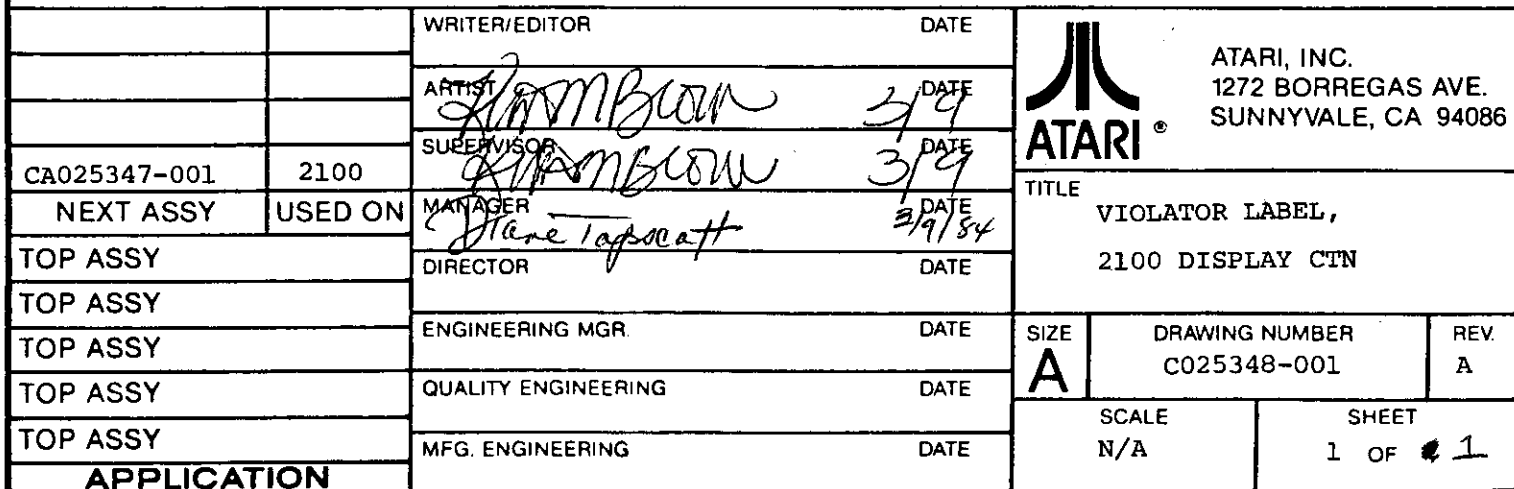 CA025347-001 2100
NEXT ASSY USED ON
TOP ASSY
TOP ASSY
TOP ASSY
TOP ASSY
TOP ASSY
APPLICATION
WRITER/EDITOR DATE
ARTIST DATE
3/9
SUPERVISOR DATE
3/9
MANAGER DATE
Diane Tapscott 3/9/84
DIRECTOR DATE
ENGINEERING MGR. DATE
QUALITY ENGINEERING DATE
MFG. ENGINEERING DATE
ATARI ®
ATARI, INC.
1272 BORREGAS AVE.
SUNNYVALE, CA 94086
TITLE
VIOLATOR LABEL,
2100 DISPLAY CTN
SIZE
A
DRAWING NUMBER
C025348-001
REV.
A
SCALE
N/A
SHEET
1 OF 1